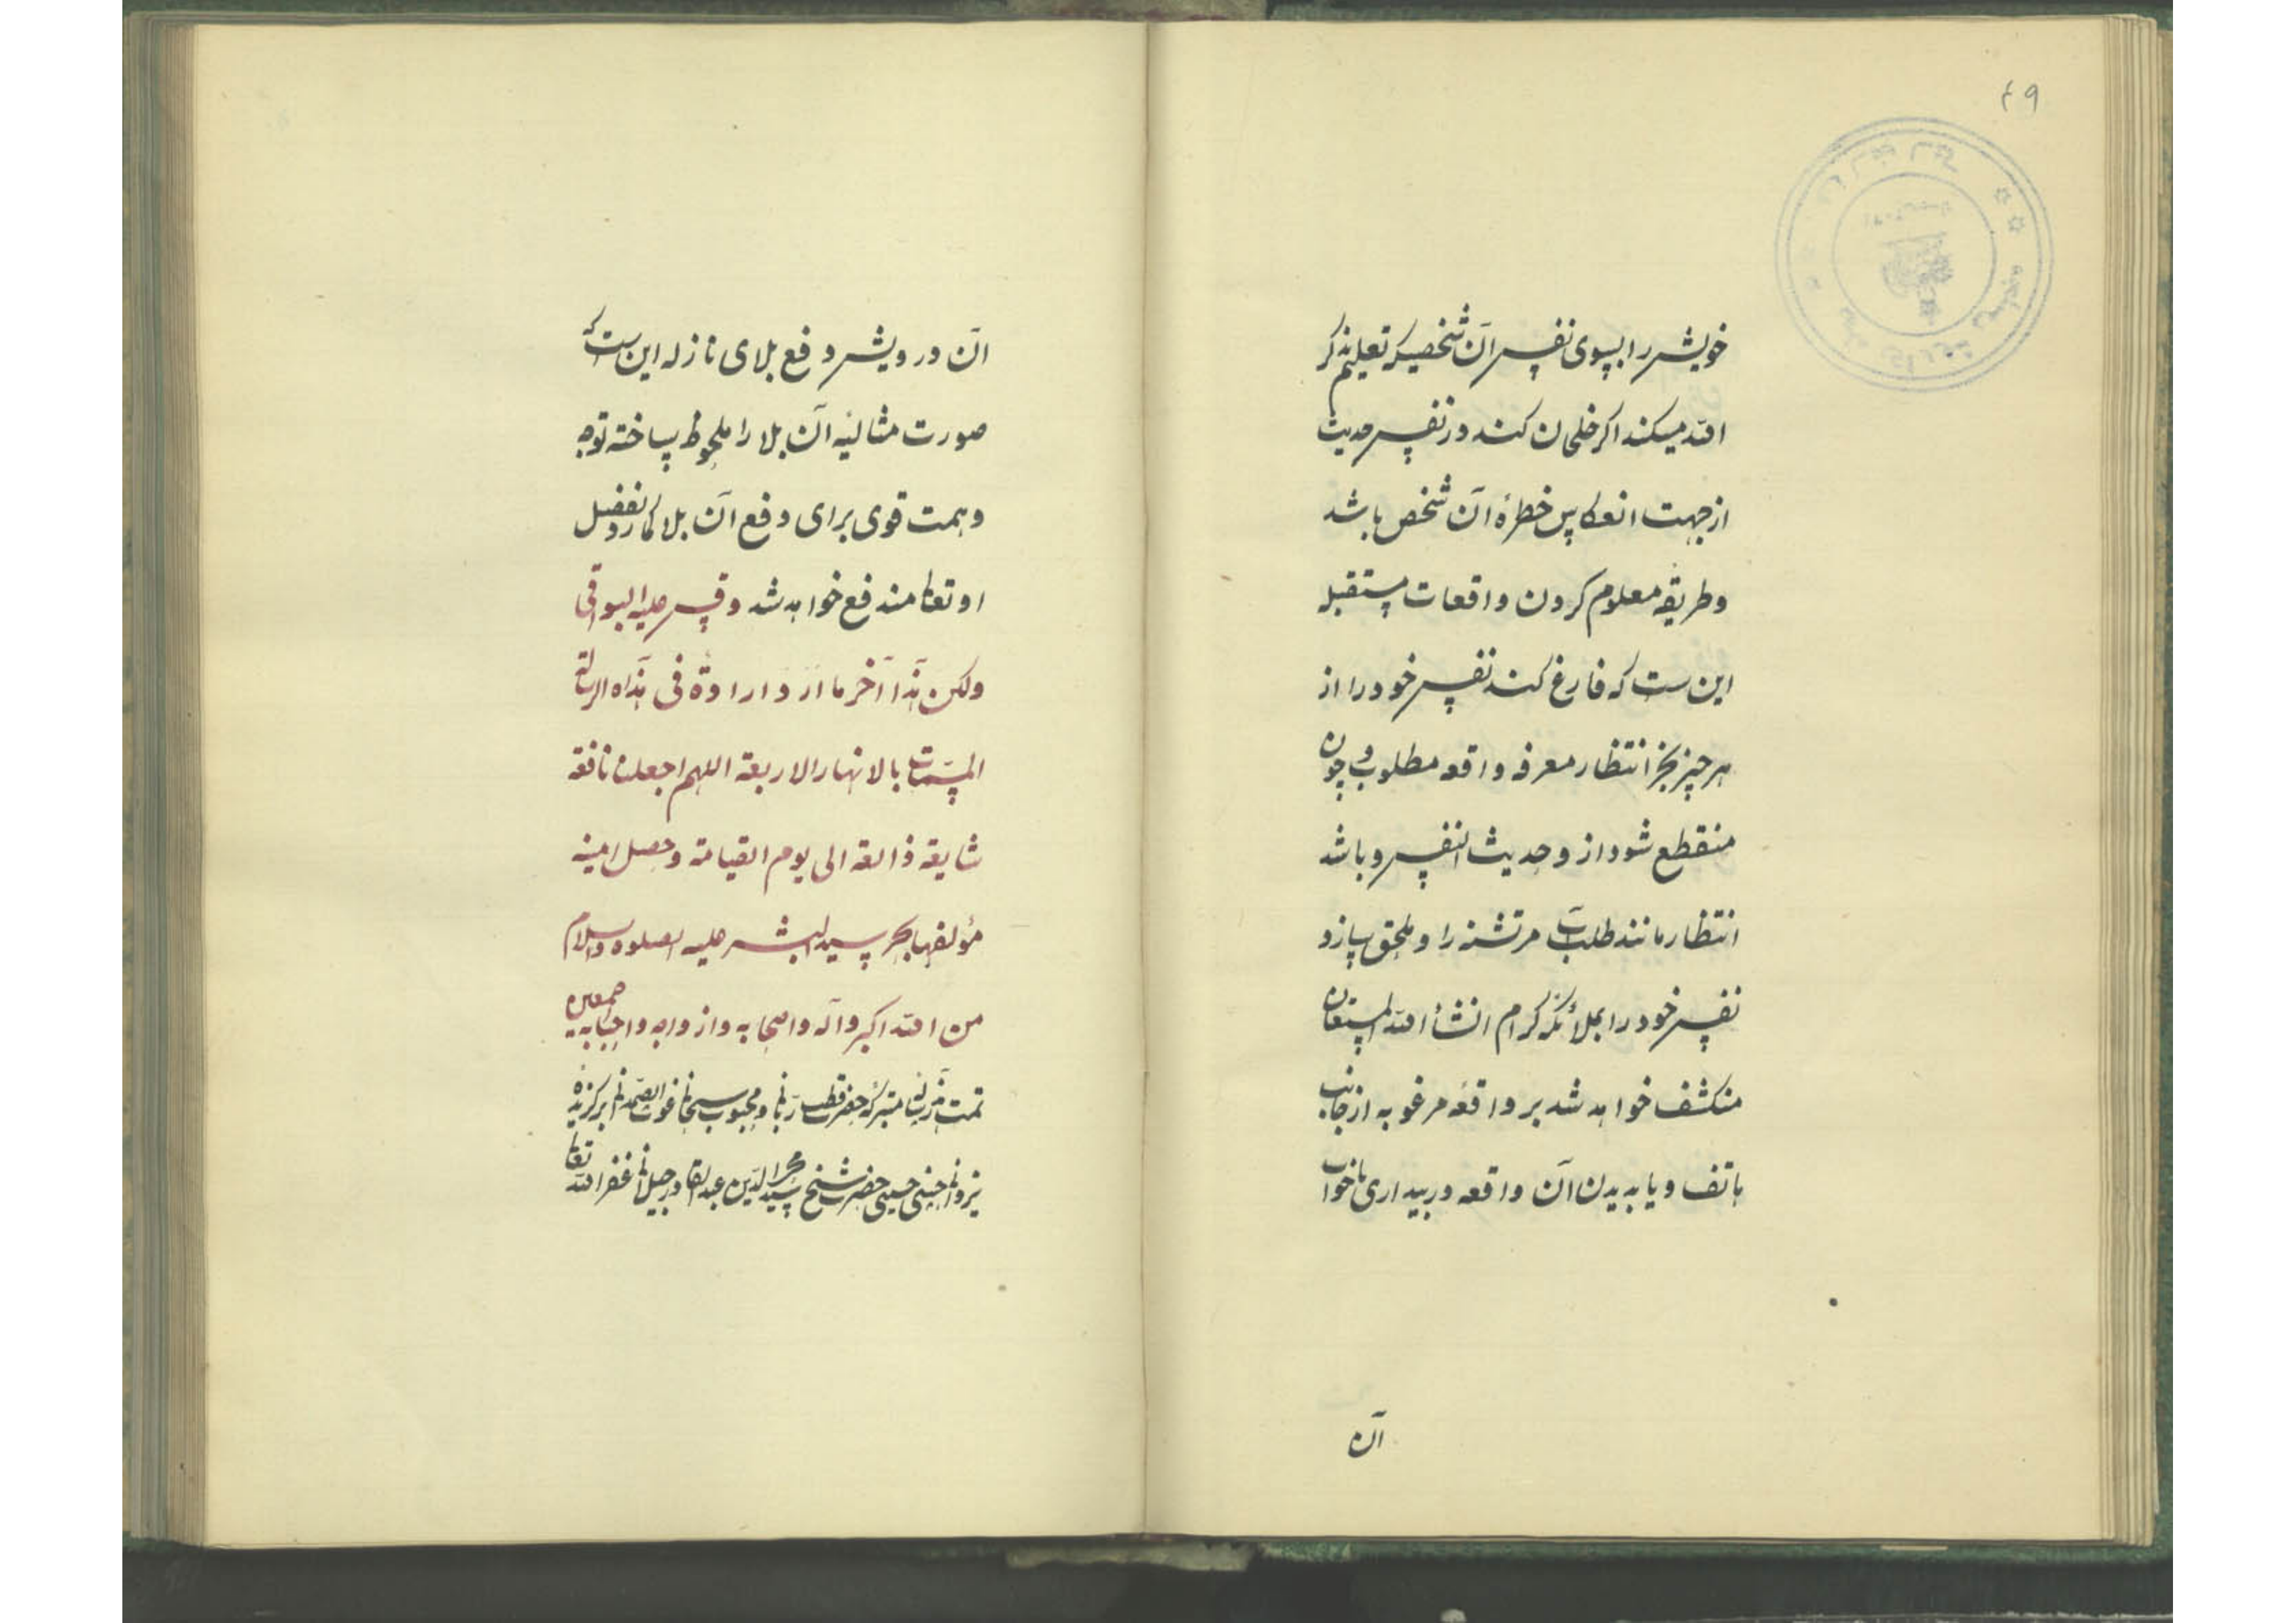 ۴۹
خویش را بسوی نفس آن شخصیکه تعلیم ذکر
الله میکند اکر خلجان کند در نفس حدیث
از جهت انعکاس خطرهٔ آن شخص باشد
و طریقه معلوم کردن واقعات مستقبله
این ست که فارغ کند نفس خود را از
هر چیز بجز انتظار معرفه واقعه مطلوب و چون
منقطع شود از و حدیث النفس و باشد
انتظار مانند طلب آب مر تشنه را و ملحق سازد
نفس خود را بملائکهٔ کرام انشأ الله المستعان
منکشف خواهد شد بر واقعهٔ مرغوبه از جانب
هاتف و یا بدیدن آن واقعه در بیداری یا خواب
آن
آن درویش و دفع بلای نازله این ست که
صورت مثالیه آن بلا را ملحوظ ساخته توجه
و همت قوی برای دفع آن بلا کمارد بفضل
او تعالی مندفع خواهد شد و قس علیه البواقی
ولکن هذا آخر ما ارد اراده فی هذاه الرسالة
المسمّات بالانهار الاربعة اللهم اجعلنا نافعة
شایعة ذائعة الی یوم القیامة و حصل امنیه
مؤلفها بحر سید البشر علیه الصلوه والسلام
من الله اکبر و آله و اصحابه و ازواجه و احبابه اجمعین
تمت هذه رساله متبرکه حضرت قطب ربانی و محبوب سبحانی غوث الصمدانی برکزیدهٔ
یزدانی حسنی حسینی حضرت شیخ سید محی الدین عبدالقادر جیلانی غفر الله تعالی